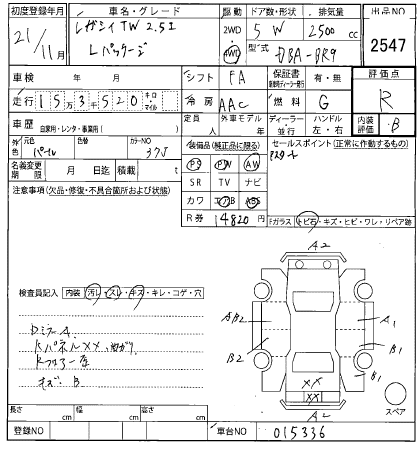 初度登録年月 車名・グレード 駆動 ドア数・形状 排気量 出品NO
21/11月 レガシィTW 2.5i 2WD 5 W 2500cc 2547
Lパッケージ 4WD 型式 DBA-BR9
車検 年 月 シフト FA 保証書 有・無 評価点
走行 15万3千520 キロ・マイル 冷房 AAC 燃料 G R
車歴 自家用・レンタ・事業用( ) 定員 人 外車モデル 年 ディーラー・並行 ハンドル 左・右 内装評価 B
外色 元色 パール 色替 カラーNO 37J 装備品(純正品に限る) セールスポイント(正常に作動するもの)
PS PW AW
名義変更期限 月 日迄 積載 t SR TV ナビ
注意事項(欠品・修復・不具合箇所および状態) カワ エアB ABS
R券 14820円
Fガラス トビ石・キズ・ヒビ・ワレ・リペア跡
A2
検査員記入 内装 汚レ・スレ・キズ・キレ・コゲ・穴
AB2 A1
DミラーA
Rパネルxx
B2 B1
B1
キズ B
XX
XX
スペア
A2
長さ cm 幅 cm 高さ cm
登録NO 車台NO 015336